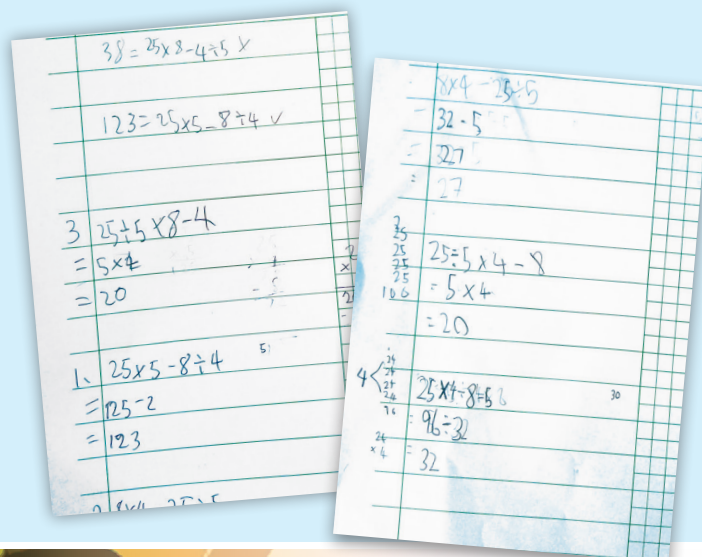 38 = 25×8-4÷5 ×
123 = 25×5-8÷4 ✓
3 25÷5×8-4
= 5×4
= 20
5
1、 25×5-8÷4
= 125-2
= 123
8×4-25÷5
= 32-5
= 327
= 27
25
25
25
25
100
25÷5×4-8
= 5×4
= 20
4
24
24
24
24
96
30
= 96÷32
24
×4
= 32